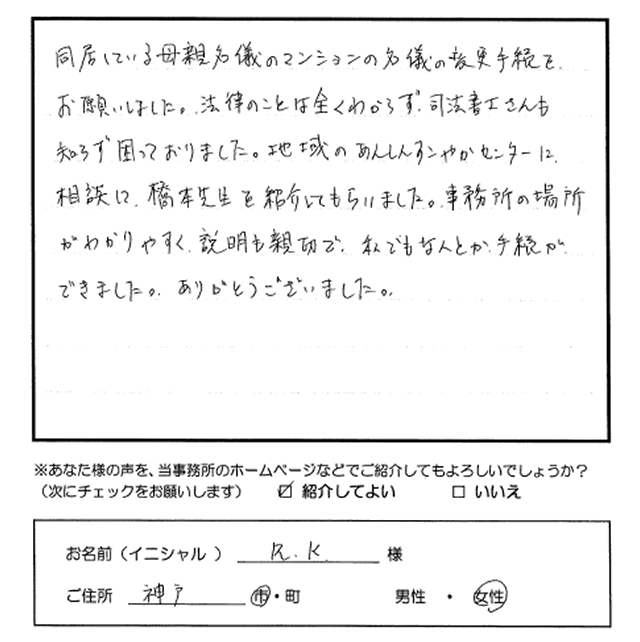 同居している母親名儀のマンションの名儀の変更手続を
お願いしました。法律のことは全くわからず、司法書士さんも
知らず困っておりました。地域のあんしんすこやかセンターに、
相談に、橋本先生を紹介してもらいました。事務所の場所
がわかりやすく、説明も親切で、私でもなんとか手続が
できました。ありがとうございました。
※あなた様の声を、当事務所のホームページなどでご紹介してもよろしいでしょうか?
(次にチェックをお願いします) ☑ 紹介してよい □ いいえ
お名前(イニシャル ) R.K. 様
ご住所 神戸 市・町 男性 ・ 女性